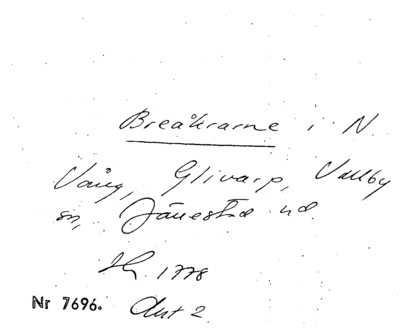 Breåkrarne i N.
Vång, Glivarp, Vallby
sn, Järrestad hd.
Sk. 1778
Nr 7696. Akt 2